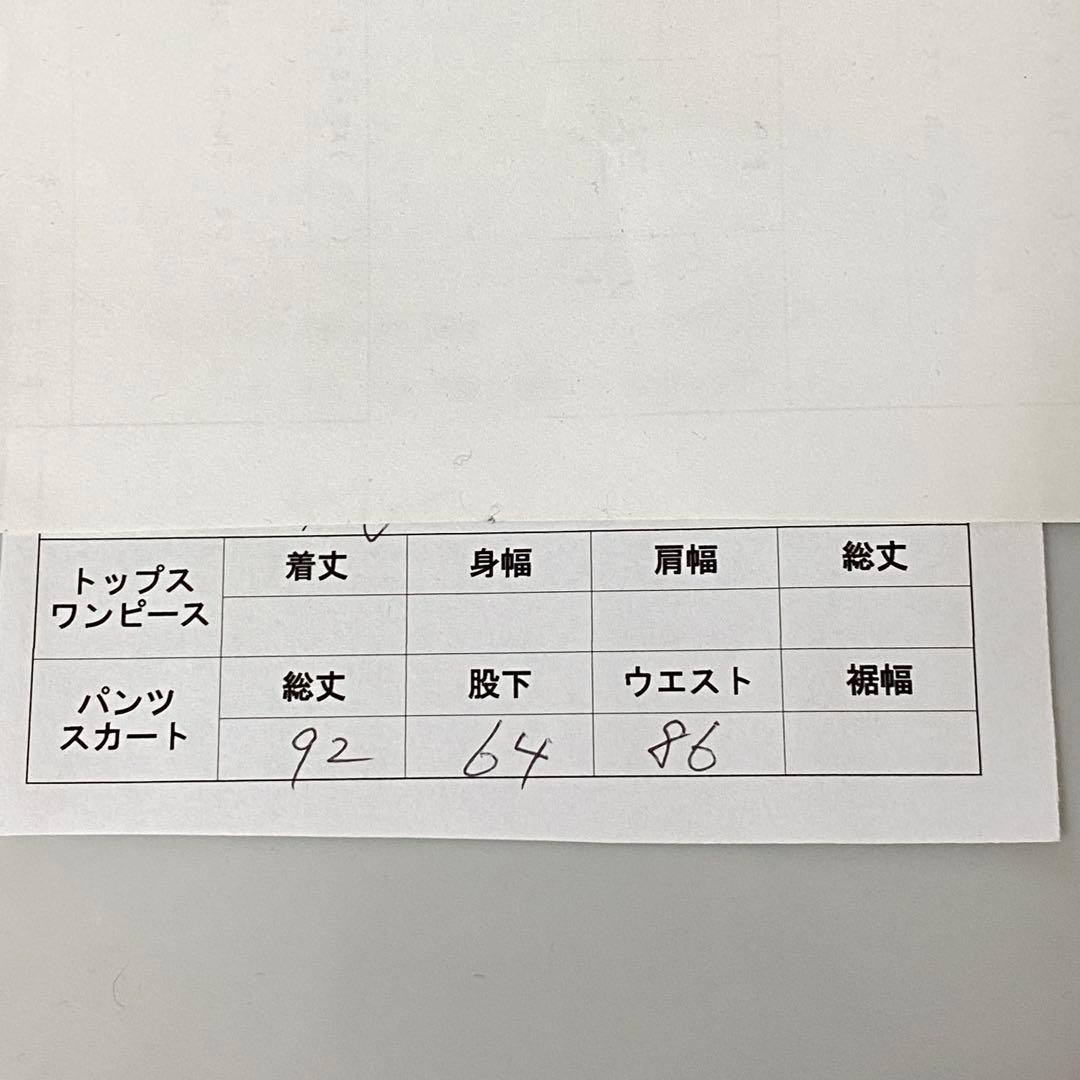 トップス
ワンピース
着丈 身幅 肩幅 総丈
パンツ
スカート
総丈 股下 ウエスト 裾幅
92 64 86